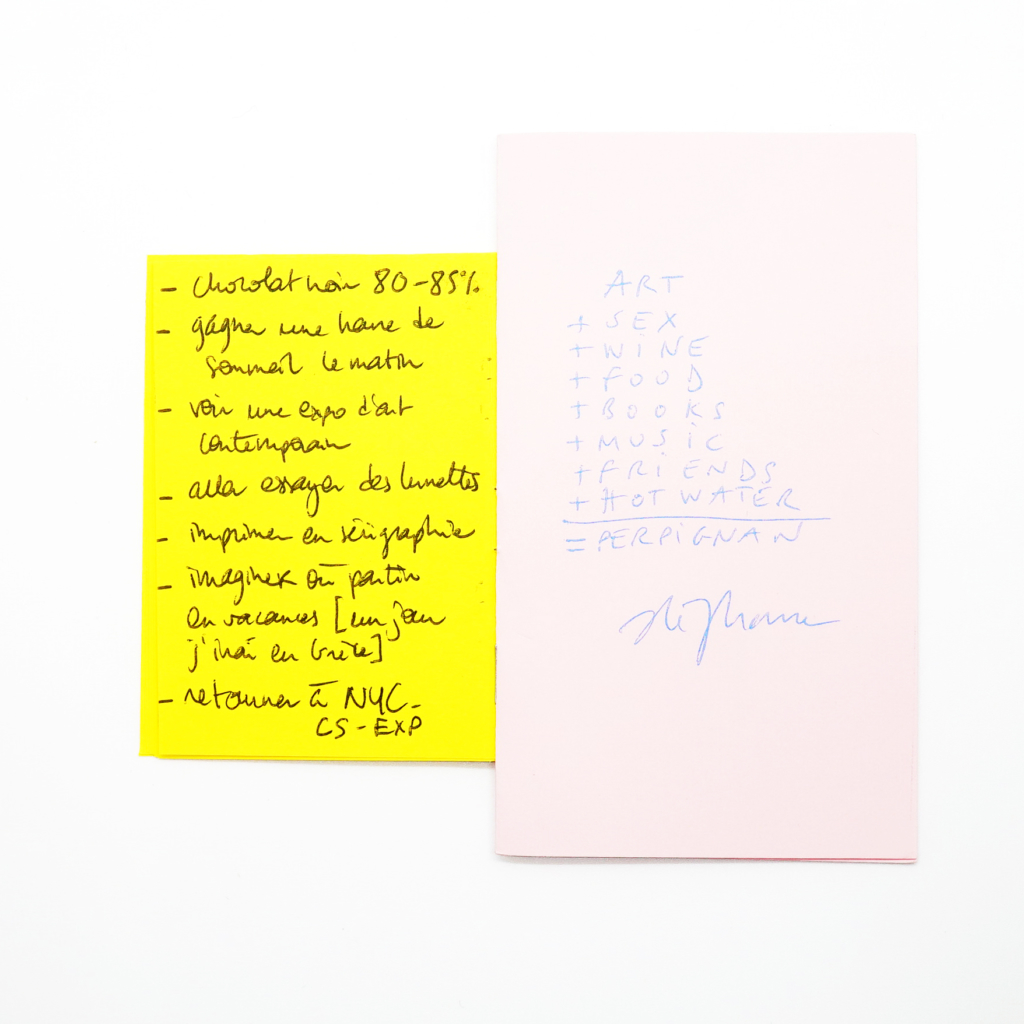 - chocolat noir 80-85%
- gagner une heure de
sommeil le matin
- voir une expo d'art
contemporain
- aller essayer des lunettes
- imprimer en sérigraphie
- imaginer où partir
en vacances [un jour
j'irai en Grèce]
- retourner à NYC-
CS-EXP
ART
+ SEX
+ WINE
+ FOOD
+ BOOKS
+ MUSIC
+ FRIENDS
+ HOT WATER
= PERPIGNAN
Stéphane